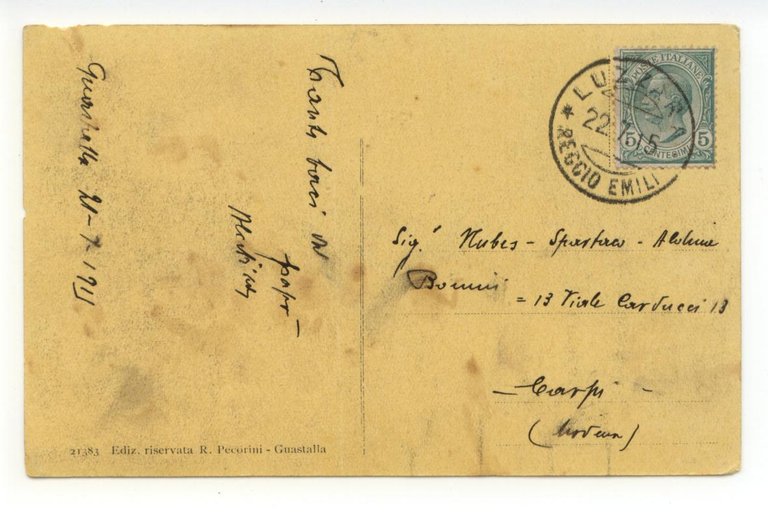 Guastalla 21-7-1915
Tanti baci dal
papà
POSTE ITALIANE
5 CENTESIMI 5
LUZZARA
22.7.15
REGGIO EMILIA
Sig.ⁱ Nubes - Spartaco -
Bonini
= 13 Viale Carducci 13
- Carpi -
(Modena)
21383 Ediz. riservata R. Pecorini - Guastalla